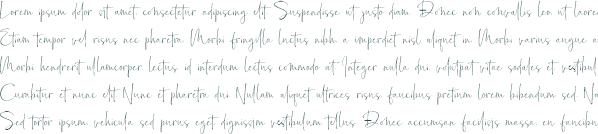 Lorem ipsum dolor sit amet consectetur adipiscing elit Suspendisse ut justo diam Donec non convallis leo ut laore
Etiam tempor vel risus nec pharetra Morbi fringilla luctus nibh a imperdiet nisl aliquet in Morbi varius augue a
Morbi hendrerit ullamcorper lectus id interdum lectus commodo at Integer nulla dui volutpat vitae sodales et vestibul
Curabitur et nunc elit Nunc et pharetra dui Nullam aliquet ultrices risus faucibus pretium lorem bibendum sed Na
Sed tortor ipsum vehicula sed purus eget dignissim vestibulum tellus Donec accumsan facilisis massa en faucibu